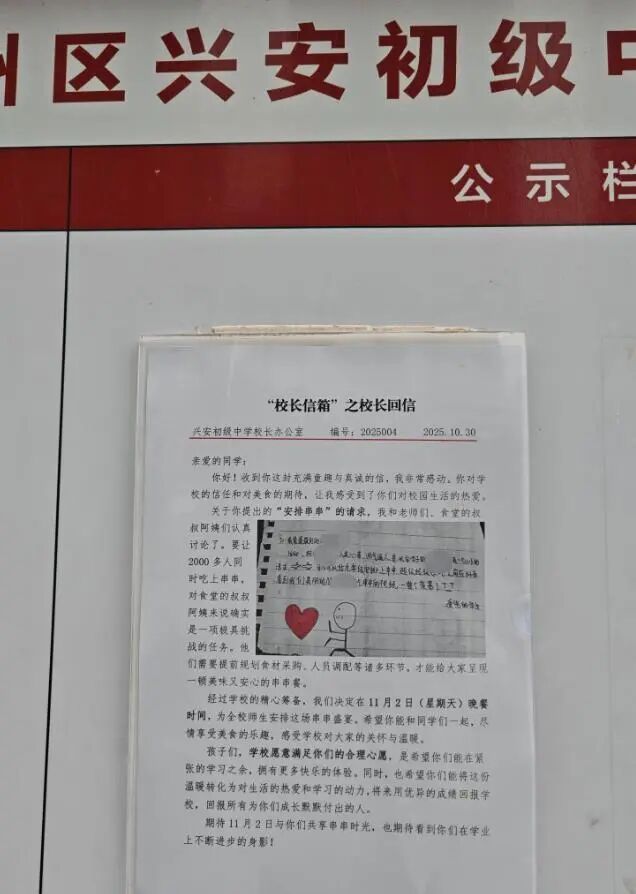 区兴安初级中
公示栏
“校长信箱”之校长回信
兴安初级中学校长办公室 编号：2025004 2025.10.30
亲爱的同学：
你好！收到你这封充满童趣与真诚的信，我非常感动。你对学
校的信任和对美食的期待，让我感受到了你们对校园生活的热爱。
关于你提出的“安排串串”的请求，我和老师们、食堂的叔
叔阿姨们认真
讨论了。要让
2000 多人同
时吃上串串，
对食堂的叔叔
阿姨来说确实
是一项极具挑
战的任务。他
们需要提前规划食材采购、人员调配等诸多环节，才能给大家呈现
一顿美味又安心的串串餐。
经过学校的精心筹备，我们决定在 11 月 2 日（星期天）晚餐
时间，为全校师生安排这场串串盛宴。希望你能和同学们一起，尽
情享受美食的乐趣，感受学校对大家的关怀与温暖。
孩子们，学校愿意满足你们的合理心愿，是希望你们能在紧
张的学习之余，拥有更多快乐的体验。同时，也希望你们能将这份
温暖转化为对生活的热爱和学习的动力，将来用优异的成绩回报学
校，回报所有为你们成长默默付出的人。
期待 11 月 2 日与你们共享串串时光，也期待看到你们在学业
上不断进步的身影！